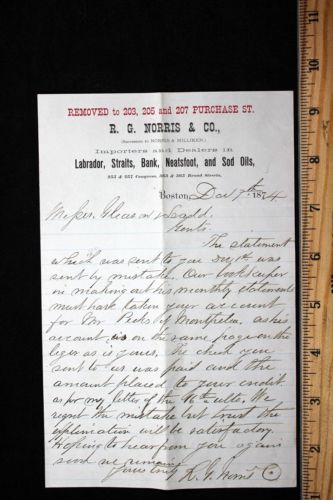 REMOVED to 203, 205 and 207 PURCHASE ST.
R. G. NORRIS & CO.,
(Successors to NORRIS & MILLIKEN,)
Importers and Dealers in
Labrador, Straits, Bank, Neatsfoot, and Sod Oils,
Boston, Dec 7th 1874
Messrs. Gleason & Ladd
Gents.
The statement
which was sent to you was
sent by mistake. Our bookkeeper
in making out his monthly statements
must have taken your account
for Mr Pecks of Montpelier, as his
account is on the same page on the
leger as is yours. The check you
sent to us was paid and the
amount placed to your credit.
as per my letter of the ulto. We
regret the mistake but trust the
explination will be satisfactory.
Hoping to hear from you again
soon we remain
Yours truly R. G. Norris & Co
11
10
9
8
7
6
5
4
3
2